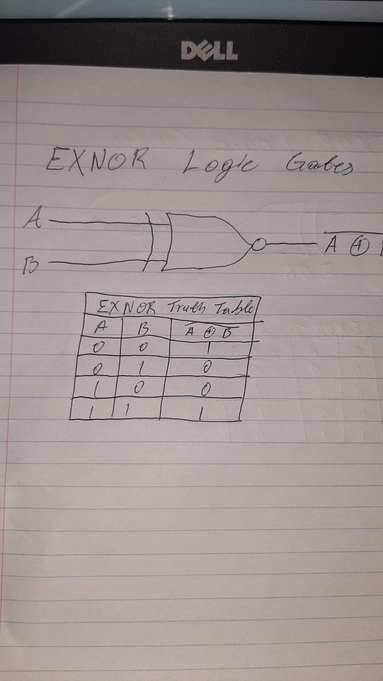 DELL
EXNOR Logic Gates
A
B
A ⊕
EXNOR Truth Table
A B A ⊕ B
0 0 1
0 1 0
1 0 0
1 1 1